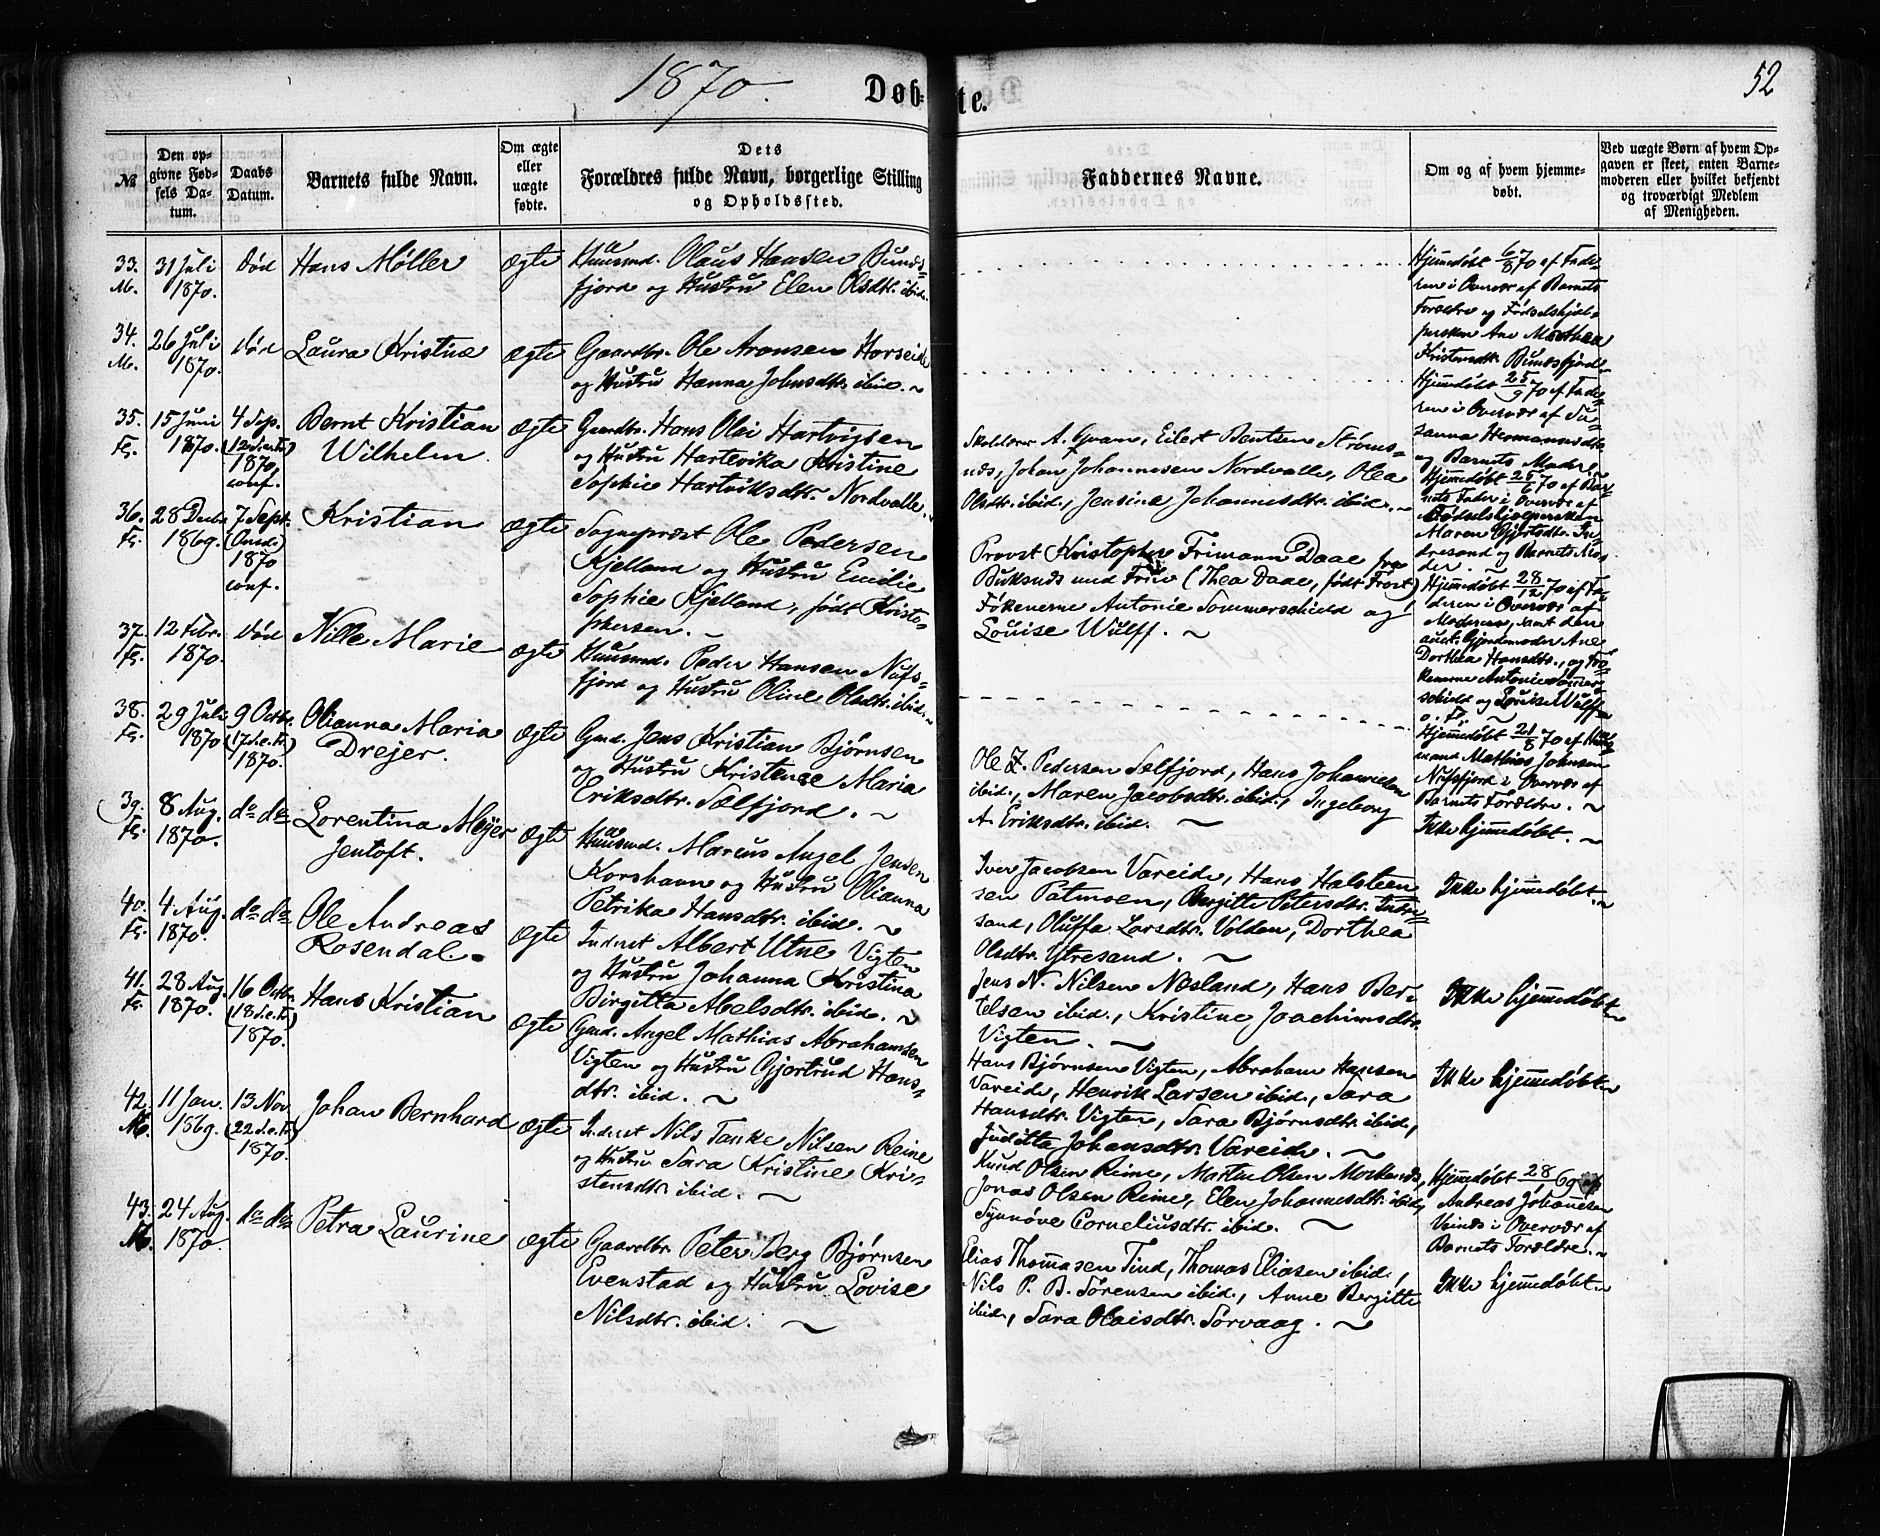 1870.
Døb-
te.
52
№
Den op-
givne Fød-
sels Da-
tum.
Daabs
Datum.
Barnets fulde Navn.
Om ægte
eller
uægte
fødte.
Dets
Forældres fulde Navn, borgerlige Stilling
og Opholdssted.
Faddernes Navne.
Om og af hvem hjemme-
døbt.
Ved uægte Børn af hvem Op-
gaven er skeet, enten Barne-
moderen eller hvilket bekjendt
og troværdigt Medlem
af Menigheden.
33.
M.
31 Juli
1870.
død
Hans Møller
ægte
Huusmd. Olaus Hansen Bunds-
fjord og Hustru Elen Olsdtr. ibid.
Hjemmedøbt 6/8 70 af Fade-
ren i Overvær af Barnets
Forældre og Fødselshjælp-
persken Ane Marthea
Kristensdtr. Bundsfjord.
34.
M.
26 Juli
1870.
død
Laura Kristine
ægte
Gaardbr. Ole Aronsen Horseid
og Hustru Hanna Johnsdtr. ibid. ~
Hjemmedøbt 25/9 70 af Fade-
ren i Overvær af Su-
sanna Hermannsdtr.
og Barnets Moder.
35.
Fl.
15 Juni
1870.
4 Sep.
(12 S.e.Tr.)
1870,
conf.
Bernt Kristian
Wilhelm
ægte
Gaardbr. Hans Olai Hartvigsen
og Hustru Hartevika Kristine
Sophie Hartviksdtr. Nordvalle. ~
Skolelærer A. Qvam, Eilert Bentsen Strøms-
nds, Johan Johannesen Nordvalle, Olea
Olsdtr. ibid., Jensine Johannesdtr. ibid. ~
Hjemmedøbt 25/6 70 af Bar-
nets Fader i Overvær af
Fødselshjælpersken
Maren Gjertsdtr. In-
dresand og Barnets Mo-
der. ~
36.
Fl.
28 Decbr.
1869.
7 Sept.
(Onsd.)
1870
conf.
Kristian
ægte
Sognepræst Ole Pedersen
Kjelland og Hustru Emilie
Sophie Kjelland, født Kristo-
phersen. ~
Provst Kristopher Frimann Daae fra
Buksnds med Frue (Thea Daae, født Frost)
Frøkenerne Antonie Sommerschield og
Louise Wulff. ~
Hjemmedøbt 28/12 70 af Fa-
deren i Overvær af
Moderen, samt den
auct. Gjordemoder Ane
Dorthea Hansdtr., og Frø-
kenerne Antonie Sommer-
schield og Louise Wulff
37.
Fl.
12 Febr.
1870.
død
Nille Marie
ægte
Huusmd. Peder Hansen Nufs-
fjord og Hustru Oline Olsdtr. ibid. ~
Hjemmedøbt 21/8 70 af Huus-
mand Mathias Johnsen
Nufsfjord i Overvær af
Barnets Forældre. ~
38.
Fl.
29 Juli
1870
9 Octbr.
(17 S.e.Tr.)
1870.
Olianna Maria
Drejer.
ægte
Gmd. Jens Kristian Bjørnsen
og Hustru Kristence Maria
Eriksdtr. Sælfjord. ~
Ole Z. Pedersen Selfjord, Hans Johannesen
ibid., Maren Jacobsdtr. ibid., Ingeborg
A. Eriksdtr. ibid. ~
Ikke hjemmedøbt. ~
39.
Fl.
8 Aug.
1870.
do do
Lorentina Meÿer
Jentoft.
ægte
Huusmd. Marcus Angel Jensen
Korshavn og Hustru Olianna
Petrika Hansdtr. ibid. ~
Iver Jacobsen Vareide, Hans Halsteen-
sen Patmoen, Bergitte Petersdtr. Indre-
sand, Oluffa Larsdtr. Volden, Dorthea
Olsdtr. Ytresand. ~
Ikke hjemmedøbt. ~
40.
Fl.
4 Aug.
1870.
do do
Ole Andreas
Rosendal.
ægte
Inderst Albert Utne Vigten
og Hustru Johanna Kristina
Birgitta Abelsdtr. ibid. ~
Jens N. Nilsen Næsland, Hans Ber-
telsen ibid., Kristine Joachimsdtr.
Vigten. ~
Ikke hjemmedøbt. ~
41.
Fl.
28 Aug.
1870.
16 Octbr.
(18 S.e.Tr.)
1870.
Hans Kristian
ægte
Gmd. Angel Mathias Abrahamsen
Vigten og Hustru Gjertrud Hans-
dtr. ibid. ~
Hans Bjørnsen Vigten, Abraham Hansen
Vareide, Henrik Larsen ibid., Sara
Hansdtr. Vigten, Sara Bjørnsdtr. ibid.,
Juditta Johansdtr. Vareide. ~
Ikke hjemmedøbt. ~
42.
M.
11 Jan.
1869.
13 Nov.
(22 S.e.Tr.)
1870.
Johan Bernhard
ægte
Inderst Nils Tanke Nilsen Reine
og Hustru Sara Kristine Kri-
stensdtr. ibid. ~
Knud Olsen Reine, Martin Olsen Moskends,
Jonas Olsen Reine, Elen Johannesdtr. ibid.,
Synnøve Corneliusdtr. ibid. ~
Hjemmedøbt 28/1 69 af
Andreas Johannesen
Vinds i Overvær af
Barnets Forældre. ~
43.
M.
24 Aug.
1870.
do do
Petra Laurine
ægte
Gaardbr. Peter Berg Bjørnsen
Evenstad og Hustru Lovise
Nilsdtr. ibid. ~
Elias Thomasen Tind, Thomas Eliasen ibid.,
Nils P. B. Sørensen ibid., Anne Bergitte
ibid., Sara Olaisdtr. Sørvaag. ~
Ikke hjemmedøbt. ~